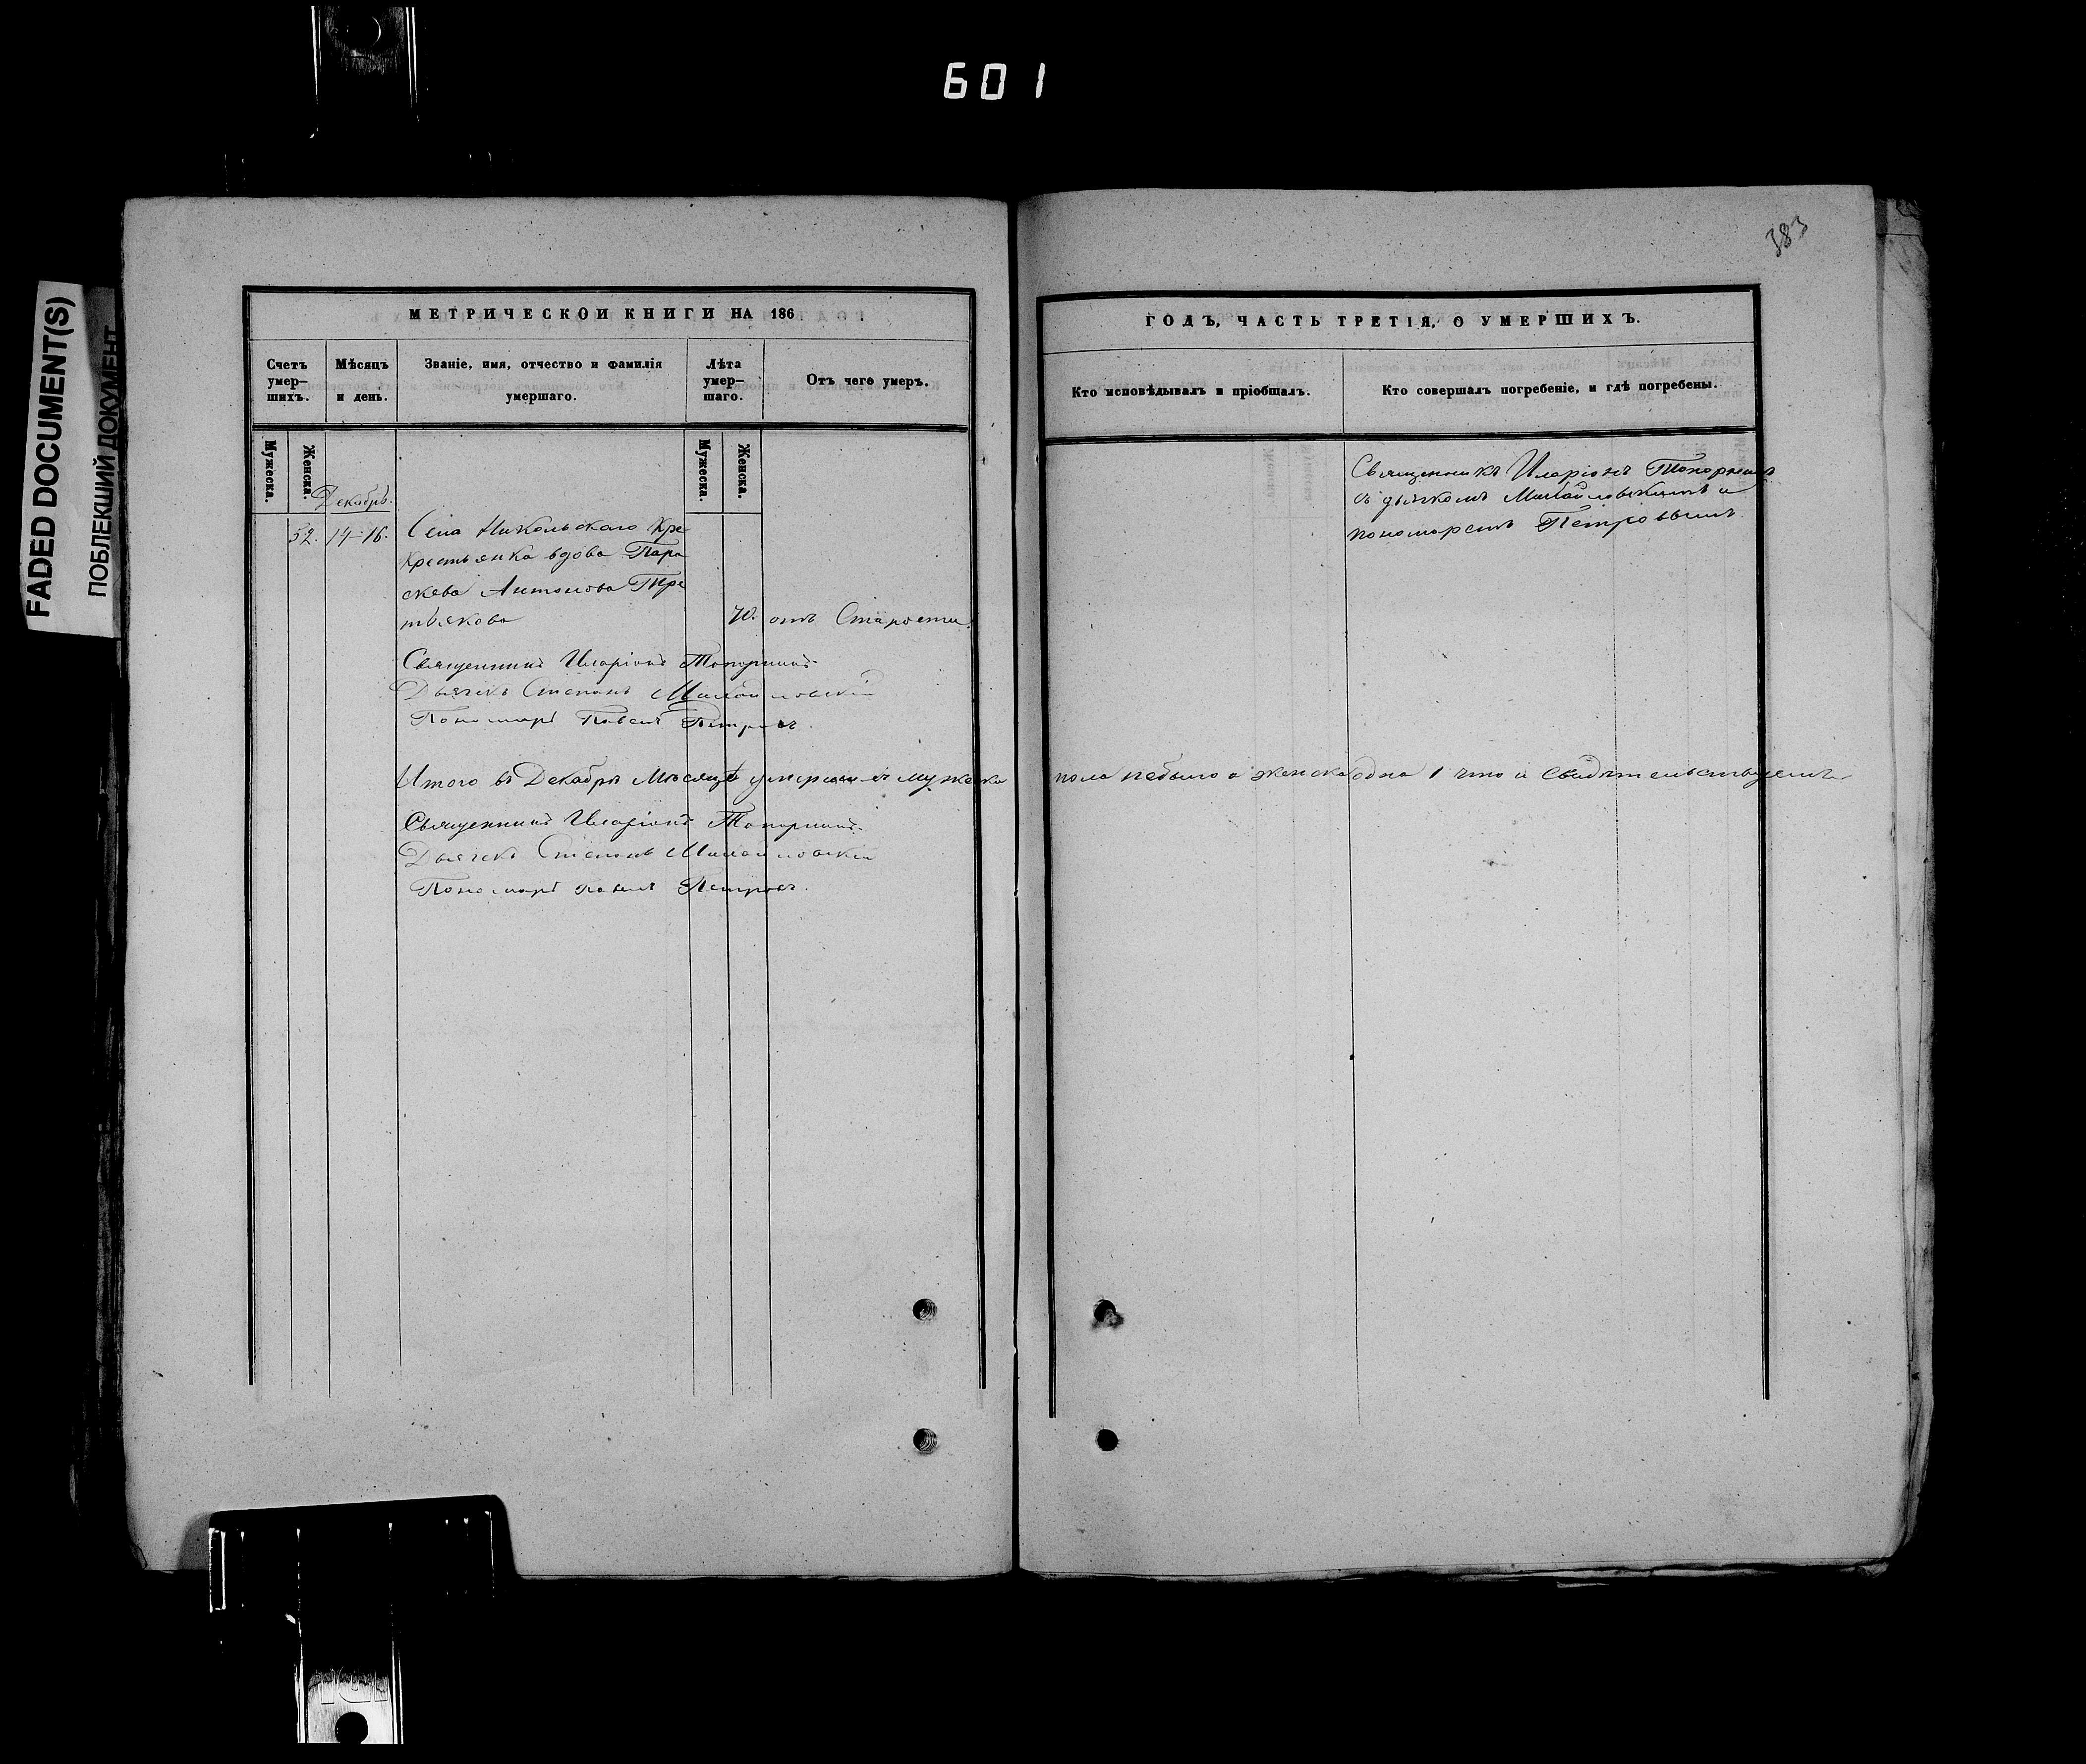 601
383
FADED DOCUMENT(S)
ПОБЛЕКШИЙ ДОКУМЕНТ
МЕТРИЧЕСКОЙ КНИГИ НА 186
ГОДЪ, ЧАСТЬ ТРЕТІЯ, О УМЕРШИХЪ.
Счетъ умер-шихъ.
Мѣсяцъ и день.
Званіе, имя, отчество и фамилія умершаго.
Лѣта умер-шаго.
Отъ чего умеръ.
Кто исповѣдывалъ и пріобщалъ.
Кто совершалъ погребеніе, и гдѣ погребены.
Мужеска.
Женска.
Мужеска.
Женска.
Декабрь.
52. 14-16. Села Никольскаго Кре
крестьянка вдова Пара
скева Антонова Тре
тьякова 70. отъ Старости.
Священникъ Иларіонъ Топорнинъ
съ дьячкомъ и
пономаремъ Петровымъ
Священникъ Иларіонъ Топорнинъ
Дьячекъ Степанъ
Пономарь Павелъ Петровъ.
Итого въ Декабрѣ Мѣсяцѣ умершихъ мужеска пола небыло а женска одна 1 что и свидѣтельствуемъ
Священникъ Иларіонъ Топорнинъ
Дьячекъ Степанъ
Пономарь Павелъ Петровъ.